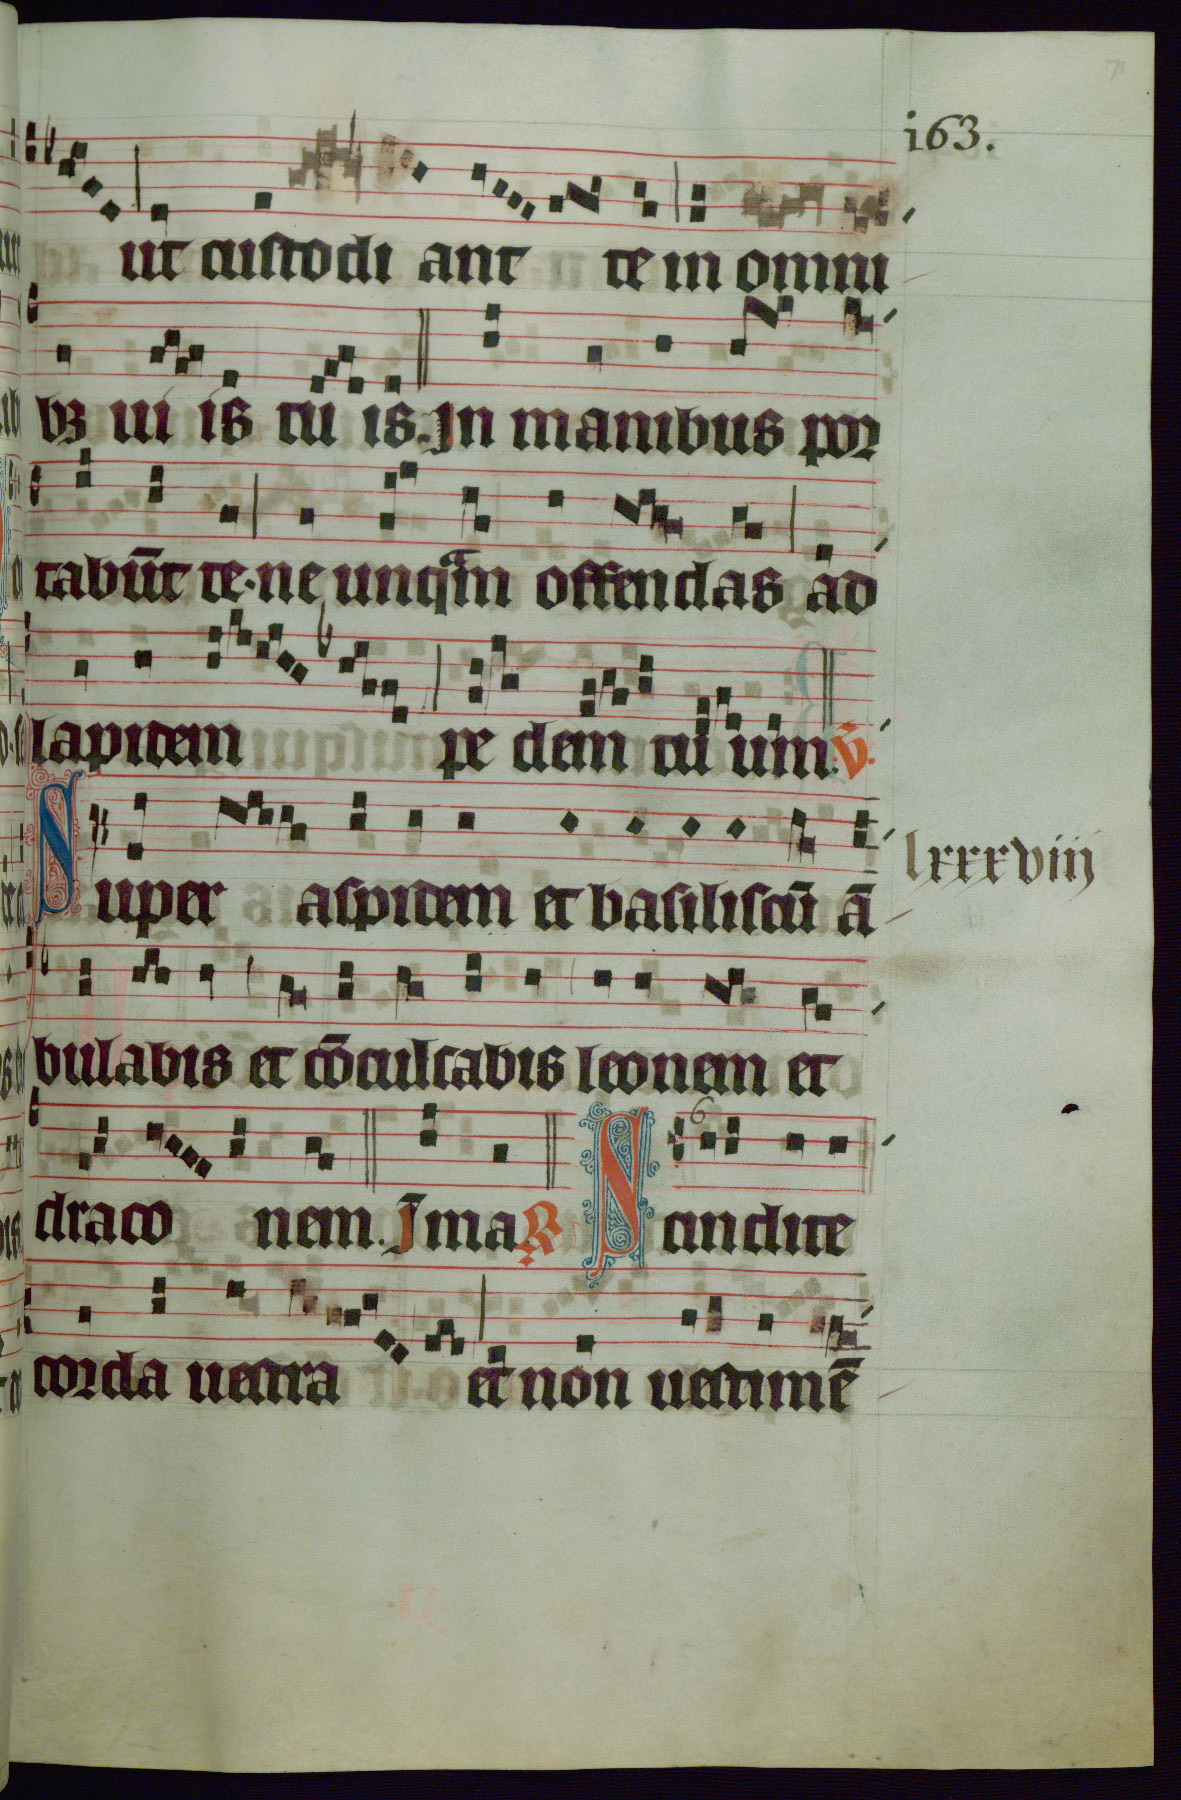 71
i63.
ut custodi ant te in omni
bꝫ ui is tu is. In manibus por
tabūt te. ne unqᵃm offendas ad
lapidem pe dem tu um. V̄.
Super aspidem et basiliscū ā
lxxxviiij
bulabis et cōculcabis leonem et
draco nem. In ma R Scindite
6
corda uestra et non uestimē